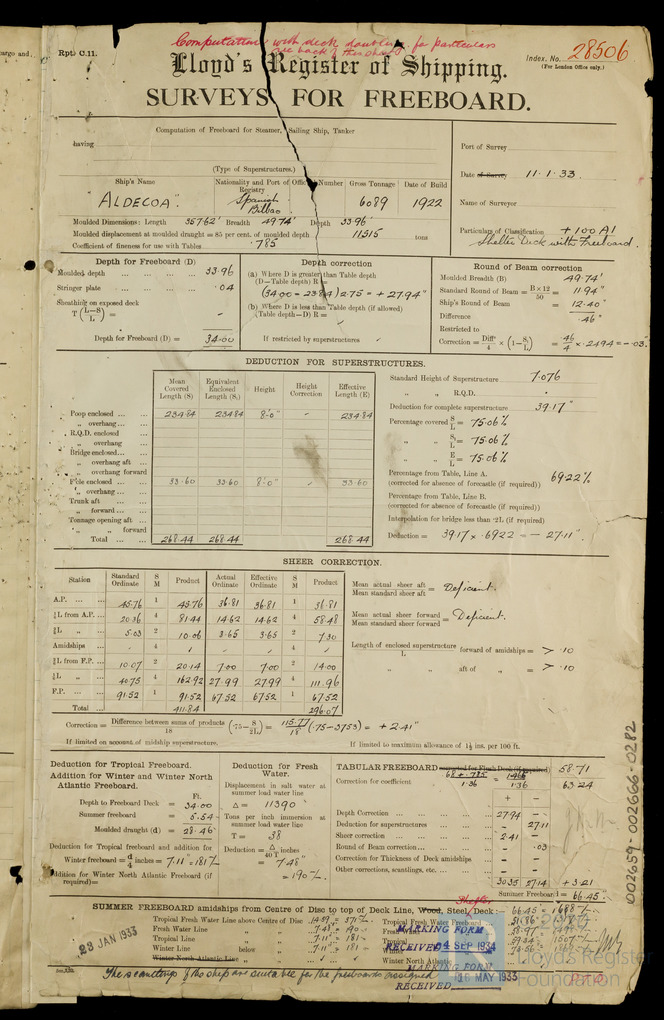 argo and,
Rpt. C.11.
Computation with deck doubling for particulars
see back of this sheet
Index. No. 28506
(For London Office only.)
Lloyd's Register of Shipping.
SURVEYS FOR FREEBOARD.
Computation of Freeboard for Steamer, Sailing Ship, Tanker
having
(Type of Superstructures.)
Port of Survey
Date of Survey 11.1.33.
Name of Surveyor
Particulars of Classification +100A1
Shelter Deck with Freeboard.
Ship's Name Nationality and Port of Registry Official Number Gross Tonnage Date of Build
"ALDECOA". Spanish Bilbao. 6089 1922
Moulded Dimensions: Length 357.62' Breadth 49.74' Depth 33.96'
Moulded displacement at moulded draught = 85 per cent. of moulded depth 11315 tons
Coefficient of fineness for use with Tables .785
Depth for Freeboard (D)
Moulded depth 33.96
Stringer plate .04
Sheathing on exposed deck
T (L-S/L) = -
Depth for Freeboard (D) = 34.00
Depth correction
(a) Where D is greater than Table depth
(D—Table depth) R =
(34.00 - 23.84) 2.75 = + 27.94"
(b) Where D is less than Table depth (if allowed)
(Table depth—D) R =
If restricted by superstructures
Round of Beam correction
Moulded Breadth (B) 49.74'
Standard Round of Beam = B×12/50 = 11.94"
Ship's Round of Beam = 12.40"
Difference .46"
Restricted to
Correction = Diff/4 × (1-S/L) = .46/4 × .2494 = -.03"
DEDUCTION FOR SUPERSTRUCTURES.
Mean Covered Length (S) Equivalent Enclosed Length (S₁) Height Height Correction Effective Length (E)
Poop enclosed 234.84 234.84 8'.0" - 234.84
„ overhang
R.Q.D. enclosed
„ overhang
Bridge enclosed
„ overhang aft
„ overhang forward
F'cle enclosed 33.60 33.60 8'.0" 33.60
„ overhang
Trunk aft
„ forward
Tonnage opening aft
„ „ forward
Total 268.44 268.44 268.44
Standard Height of Superstructure 7.076
„ „ R.Q.D.
Deduction for complete superstructure 39.17"
Percentage covered S/L = 75.06%
„ „ S₁/L = 75.06%
„ „ E/L = 75.06%
Percentage from Table, Line A. 69.22%
(corrected for absence of forecastle (if required))
Percentage from Table, Line B.
(corrected for absence of forecastle (if required))
Interpolation for bridge less than ·2L (if required)
Deduction = 39.17 × .6922 = - 27.11"
SHEER CORRECTION.
Station Standard Ordinate S M Product Actual Ordinate Effective Ordinate S M Product
A.P. 45.76 1 45.76 36.81 36.81 1 36.81
⅙L from A.P. 20.36 4 81.44 14.62 14.62 4 58.48
⅓L „ 5.03 2 10.06 3.65 3.65 2 7.30
Amidships - 4 - - - 4 -
⅓L from F.P. 10.07 2 20.14 7.00 7.00 2 14.00
⅙L „ 40.75 4 162.92 27.99 27.99 4 111.96
F.P. 91.52 1 91.52 67.52 67.52 1 67.52
Total 411.84 296.07
Mean actual sheer aft / Mean standard sheer aft = Deficient.
Mean actual sheer forward / Mean standard sheer forward = Deficient.
Length of enclosed superstructure / L forward of amidships = > .10
„ „ aft of „ = > .10
Correction = Difference between sums of products/18 (·75 - S/2L) = 115.77/18 (.75 - .3753) = + 2.41"
If limited on account of midship superstructure.
If limited to maximum allowance of 1½ ins. per 100 ft.
Deduction for Tropical Freeboard.
Addition for Winter and Winter North Atlantic Freeboard.
Ft.
Depth to Freeboard Deck = 34.00
Summer freeboard = 5.54
Moulded draught (d) = 28.46
Deduction for Tropical freeboard and addition for
Winter freeboard = d/4 inches = 7.11" = 181 m/m
Addition for Winter North Atlantic Freeboard (if required) =
Deduction for Fresh Water.
Displacement in salt water at summer load water line
Δ = 11390
Tons per inch immersion at summer load water line
T = 38
Deduction = Δ/40T inches
= 7.48"
= 190 m/m
TABULAR FREEBOARD corrected for Flush Deck (if required) 58.71
Correction for coefficient .68 + .785 / 1.36 = 1.465 / 1.36 63.24
+ -
Depth Correction 27.94 -
Deduction for superstructures - 27.11
Sheer correction 2.41 -
Round of Beam correction - .03
Correction for Thickness of Deck amidships - -
Other corrections, scantlings, etc. - -
30.35 27.14 + 3.21
Summer Freeboard = 66.45"
SUMMER FREEBOARD amidships from Centre of Disc to top of Deck Line, Wood, Steel, Shelter Deck:— 66.45 = 1688 m/m
Tropical Fresh Water Line above Centre of Disc 14.59 = 371 m/m
Fresh Water Line „ „ 7.48 = 190
Tropical Line „ „ 7.11 = 181
Winter Line below „ 7.11 = 181
Winter North Atlantic Line „
Tropical Fresh Water Freeboard 51.86
Fresh Water „ 58.97
Tropical „ 59.34 = 1507
Winter „ 73.56
Winter North Atlantic „
23 JAN 1933
MARKING FORM
RECEIVED 04 SEP 1934
MARKING FORM
RECEIVED 16 MAY 1933
The scantlings of the ship are suitable for the freeboards assigned
002659-002666-0282
Lloyd's Register
Foundation